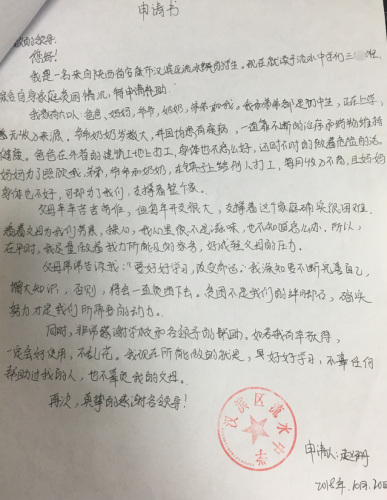 申请书
敬的领导:
您好!
我是一名来自陕西省安康市汉滨区流水镇的学生。现在就读于流水中学初三
自身家庭贫困情况,特申请补助。
我家有六口人:爸爸、妈妈,爷爷,奶奶,弟弟和我。我和弟弟都是初中生,正在上学,
无收入来源。爷爷奶奶岁数大,并且伤患有疾病,一直靠不断的治疗和药物维持
健康。爸爸在外省的建筑工地上打工,身体也不怎么好,还时不时的做着危险的活。
妈妈为了照顾我、弟弟、爷爷和奶奶,在镇子上给别人打工,每月收入不高,且妈妈
身体也不好,可却为了我们,支撑着整个家。
父母辛辛苦苦劳作,但每年开支很大,支撑着这个家庭确实很困难。
看着父母为我们劳累,操心,我心里很不是滋味,也不知道怎么办,所以,
在平时,我尽量做着我力所能及的家务,好减轻父母的压力。
父母常常告诉我:“要好好学习,改变命运”。我深知要不断完善自己,
增大知识,否则,将会一直贫困下去。贫困不是我们的绊脚石,确实
努力才是我们所需要的动力。
同时,非常感谢学校和各领导的帮助。如若我有幸获得,
一定会好使用,不乱花。我现在所能做的就是,是好好学习,不辜任何
帮助过我的人,也不辜负我的父母。
再次,真挚的感谢各领导!
汉滨区流水中学
申请人:赵
2018年.10月.20日